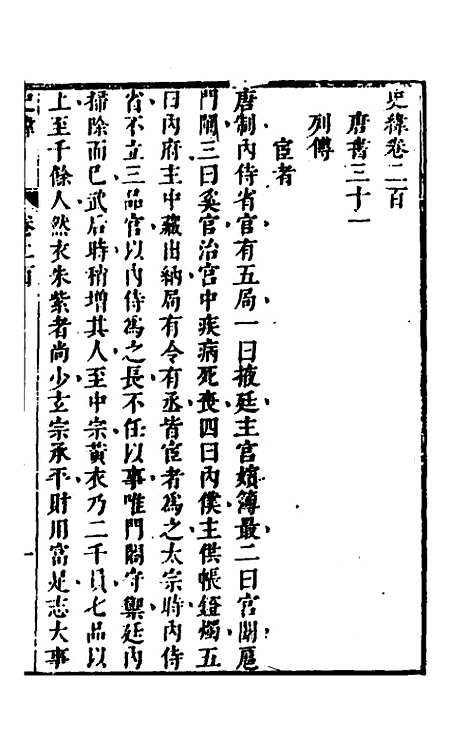 史緯卷二百
唐書三十一
列傳
宦者
唐制內侍省官有五局一曰掖廷主官嬪簿最二曰宫闈扈
門闌三曰奚官治宫中疾病死喪四曰內僕主供帳鐙燭五
曰內府主中藏出納局有令有丞皆宦者爲之太宗時內侍
省不立三品官以內侍爲之長不任以事唯門閤守禦廷內
掃除而已武后時稍增其人至中宗黃衣乃二千員七品以
上至千餘人然衣朱紫者尚少玄宗承平財用富足志大事
史緯
卷二百
一